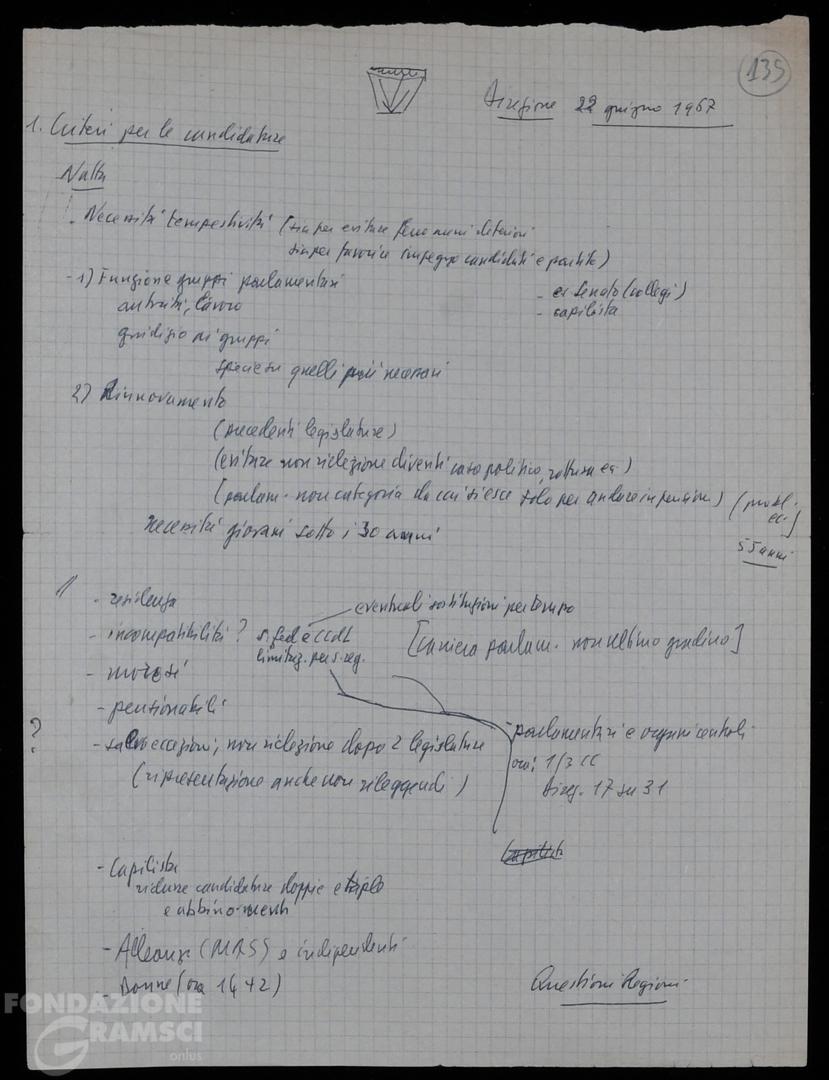 135
Direzione 22 giugno 1967
1. Criteri per le candidature
Natta
- Necessità tempestività (sia per evitare fenomeni deteriori
sia per favorire impegno candidati e partito)
- 1) Funzione gruppi parlamentari
autorità, lavoro
giudizio dei gruppi
specie su quelli più necessari
- ex Senato (collegi)
- capilista
2) Rinnovamento
(precedenti legislature)
(evitare non rielezione diventi caso politico, rottura ecc)
(parlam. non categoria da cui si esce solo per andare in pensione) (probl. ecc)
necessità giovani sotto i 30 anni
55 anni
- residenza
eventuali sostituzioni per tempo
- incompatibilità? s. fed e CCdL
limitaz. per s. reg.
[carriera parlam. non ultimo gradino]
- morosi
- pensionabili
? - salvo eccezioni, non rielezione dopo 2 legislature
(ripresentazione anche non rileggendi)
- parlamentari e organi centrali
ora: 1/3 CC
Direz. 17 su 31
- Capilista
ridurre candidature doppie e triple
e abbinamenti
- Alleanze (MAS) e indipendenti
- Donne (ora 14+2)
Questioni Regioni
FONDAZIONE
GRAMSCI
onlus